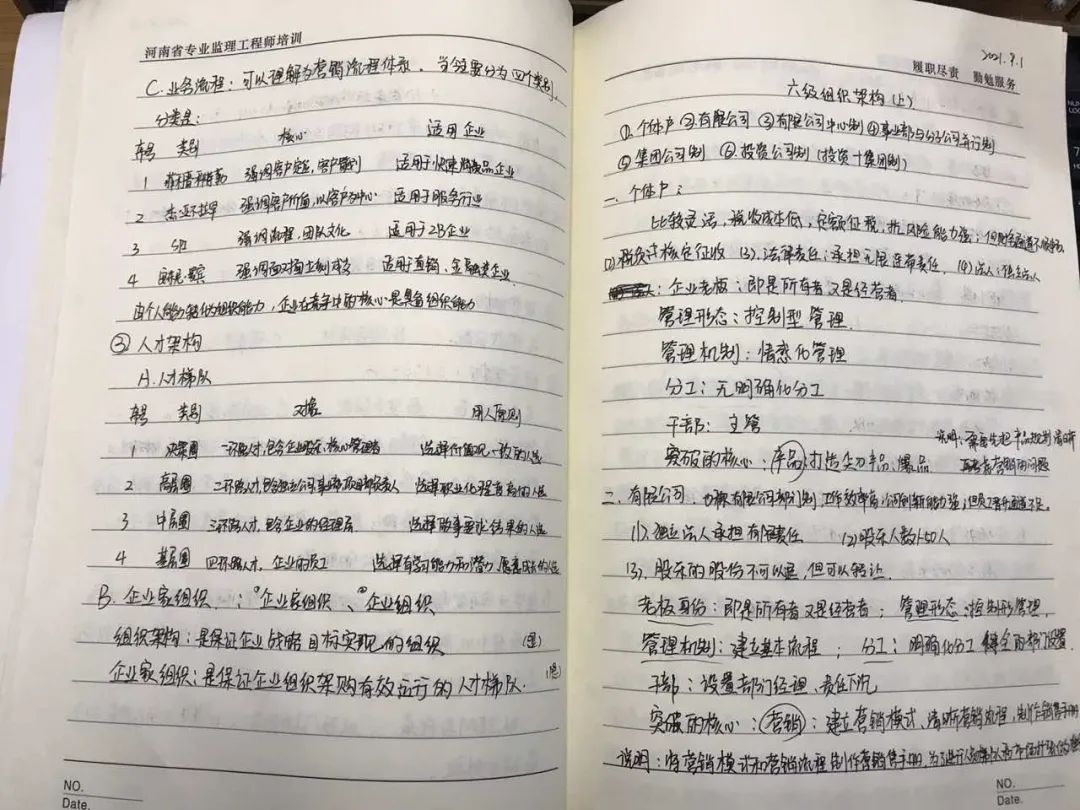 河南省专业监理工程师培训
C. 业务流程：可以理解为营销流程体系，当今主要分为四个类别
分类是：
序号 类别 核心 适用企业
1 菲利普·科特勒 强调客户定位，客户吸引 适用于快速消费品企业
2 杰·亚不拉罕 强调客户价值，以客户为中心 适用于服务行业
3 强调流程，团队文化 适用于2B企业
4 强调面对面 成交 适用于直销、金融类企业
由个人能力转化为组织能力，企业在竞争中的核心是具备组织能力
③ 人才架构
A. 人才梯队
序号 类别 对象 用人原则
1 决策圈 一环路人才，包含企业股东、核心管理者 选择价值观一致的人选
2 高层圈 二环路人才，包含 公司事业部项目部负责人 选择职业化 的人选
3 中层圈 三环路人才，包含企业的经理层 选择做事要求结果的人选
4 基层圈 四环路人才，企业的员工 选择有学习能力和潜力 愿意成长的人选
B. 企业家组织：①企业家组织、②企业组织
组织架构：是保证企业战略目标实现的组织
企业家组织：是保证企业组织架构有效运行的人才梯队
NO.
Date.
2021.9.1
履职尽责 勤勉服务
六级组织架构(上)
①个体户 ②有限公司 ③有限公司中心制 ④事业部与分子公司并行制
⑤集团公司制 ⑥投资公司制(投资+集团制)
一、个体户：
比较灵活，税收成本低，定额征税，抗风险能力强；但
(2)税负 核定征收 (3)、法律责任：承担无限连带责任。(4)法人：
：企业老板：即是所有者又是经营者.
管理形态：控制型管理.
管理机制：情感化管理
分工：无明确化分工
干部：主管
突破的核心：产品：打造尖刀产品、爆品
说明：
二、有限公司，也称有限公司部门制，工作效率高，公司创新能力强；但员工晋升通道不足.
(1)、独立法人承担有限责任 (2)股东人数1-50人
(3)、股东的股份不可以退，但可以转让.
老板身份：即是所有者又是经营者；管理形态：控制形管理.
管理机制：建立基本流程；分工：明确化分工 健全的部门设置.
干部：设置部门经理、责任下沉
突破的核心：营销：建立营销模式、清晰营销流程，制作销售手册
说明：将营销模式和营销流程制作营销售手册，为了
NO.
Date.